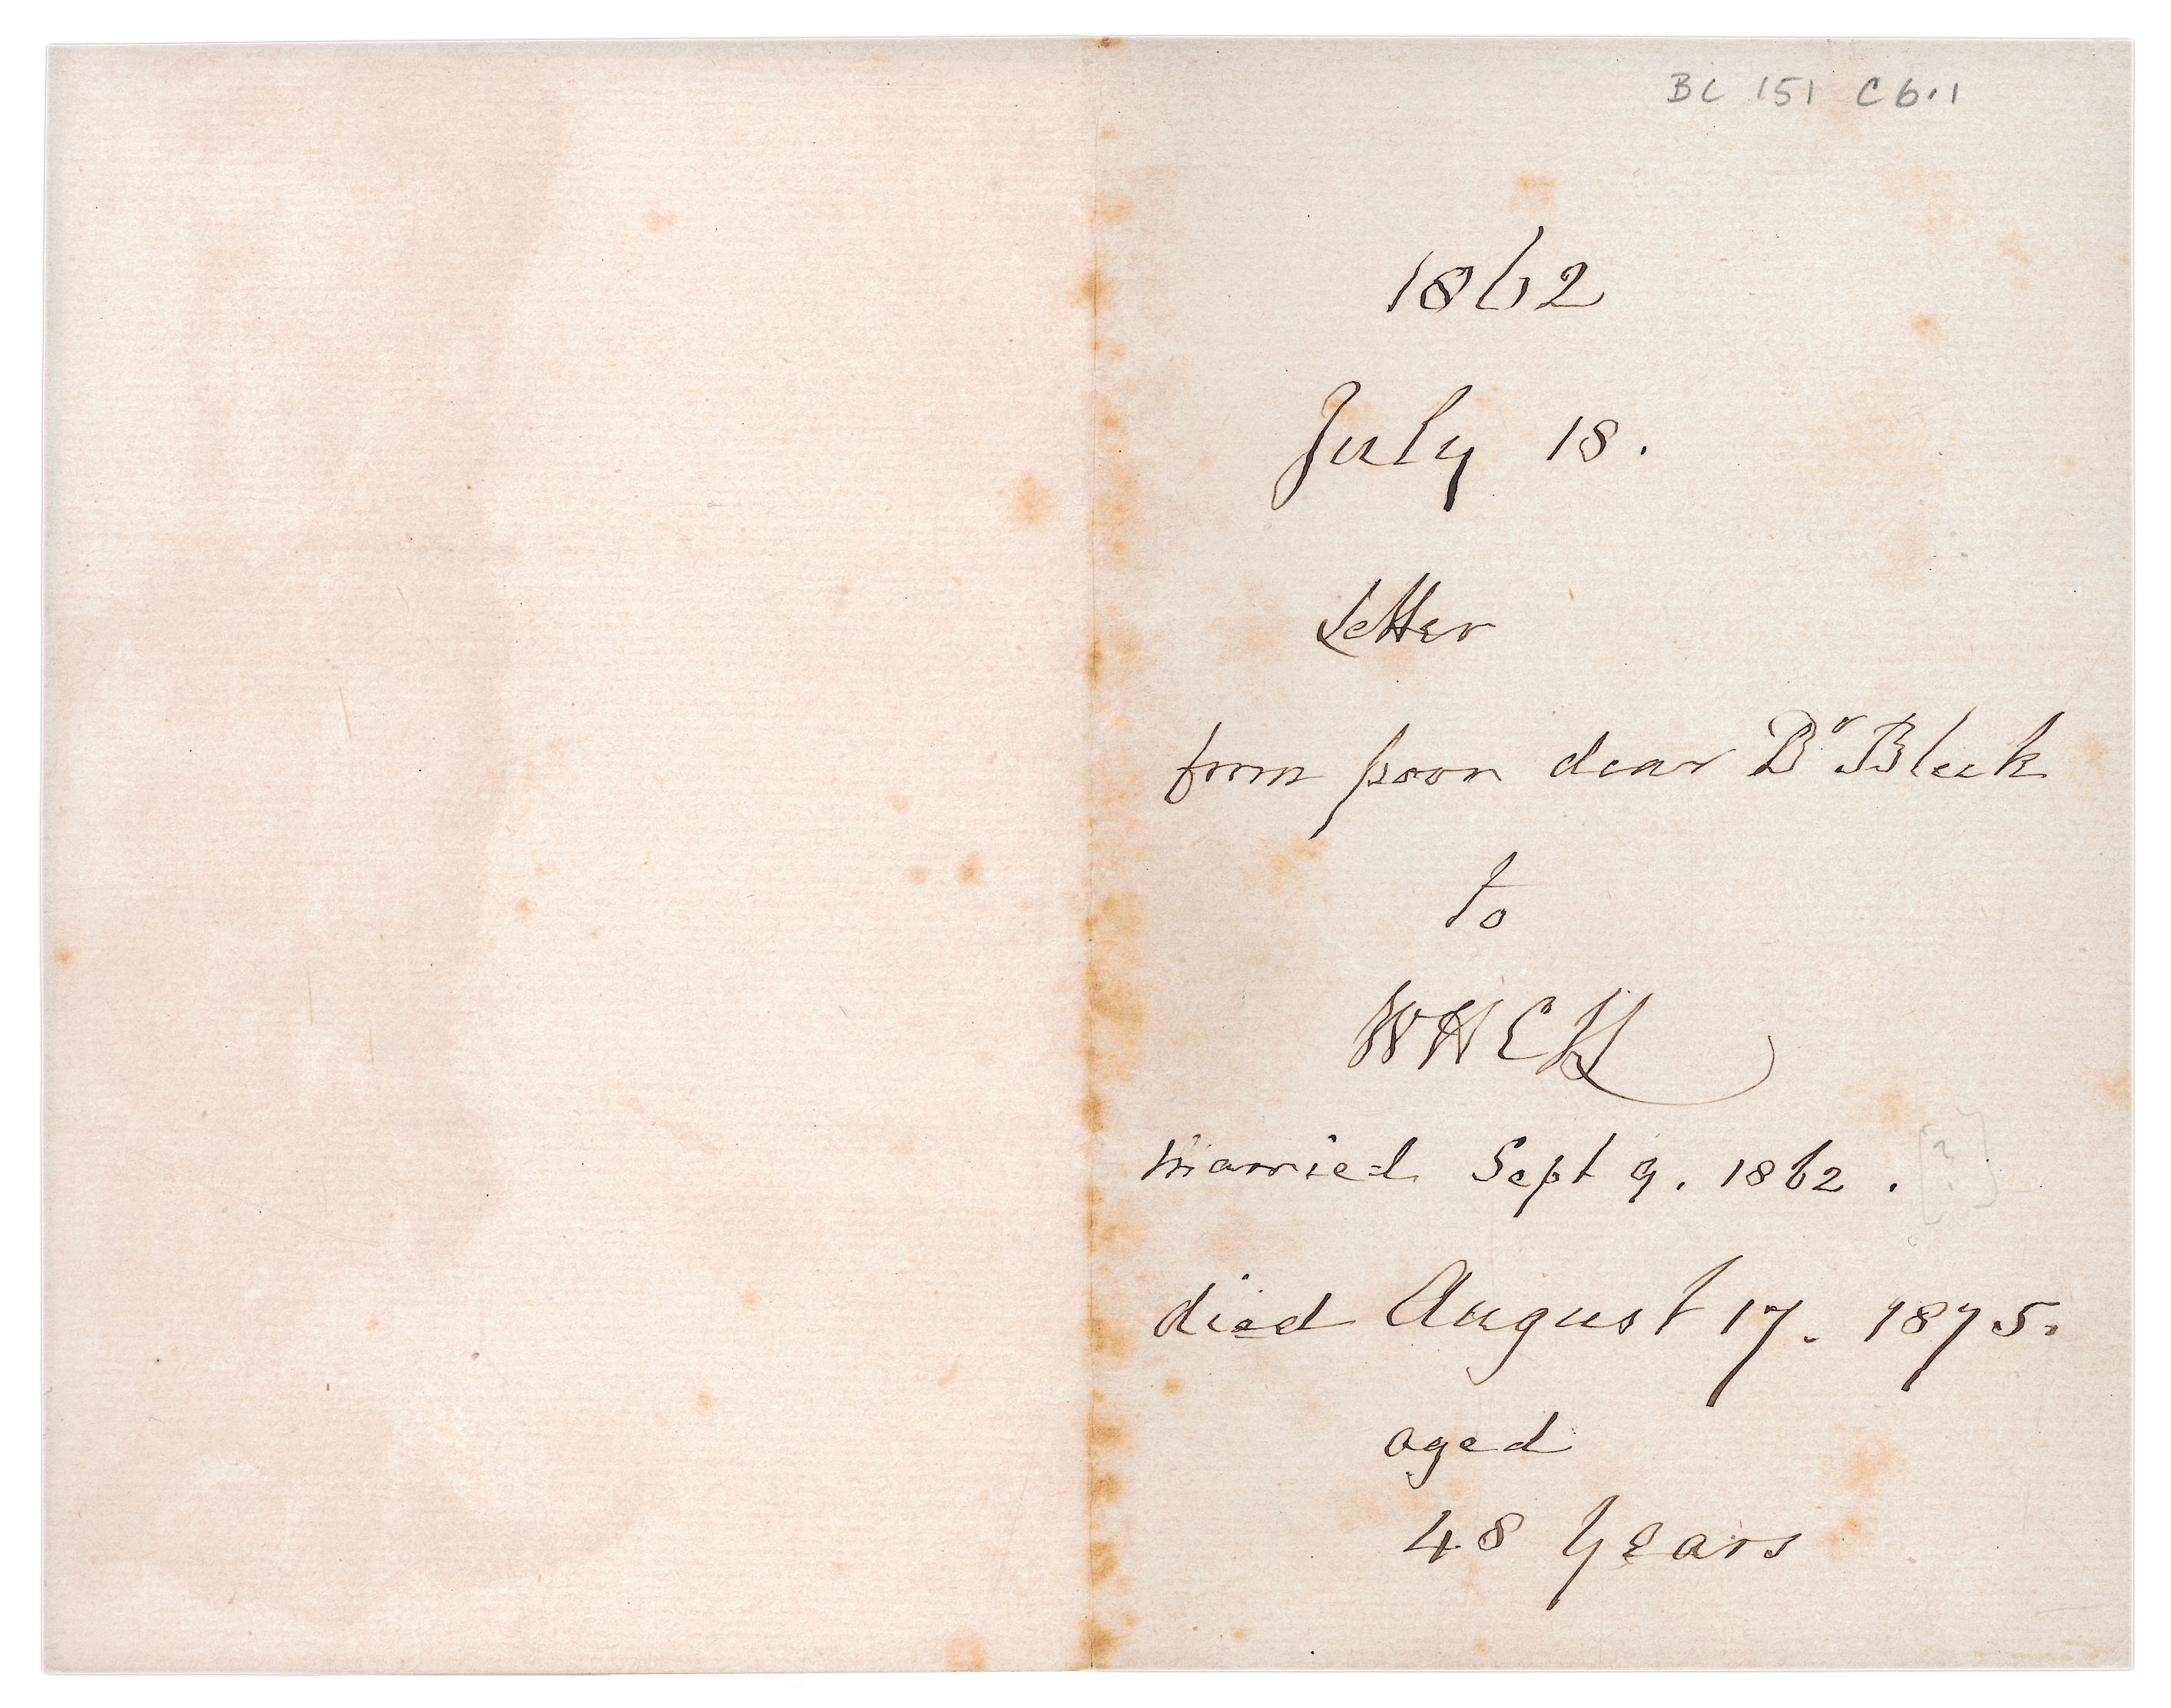 BC 151 C6.1
1862
July 18.
Letter
from poor dear Dr Bleek
to
WHEH
married Sept 9. 1862. [?]
died August 17. 1875.
aged
48 years